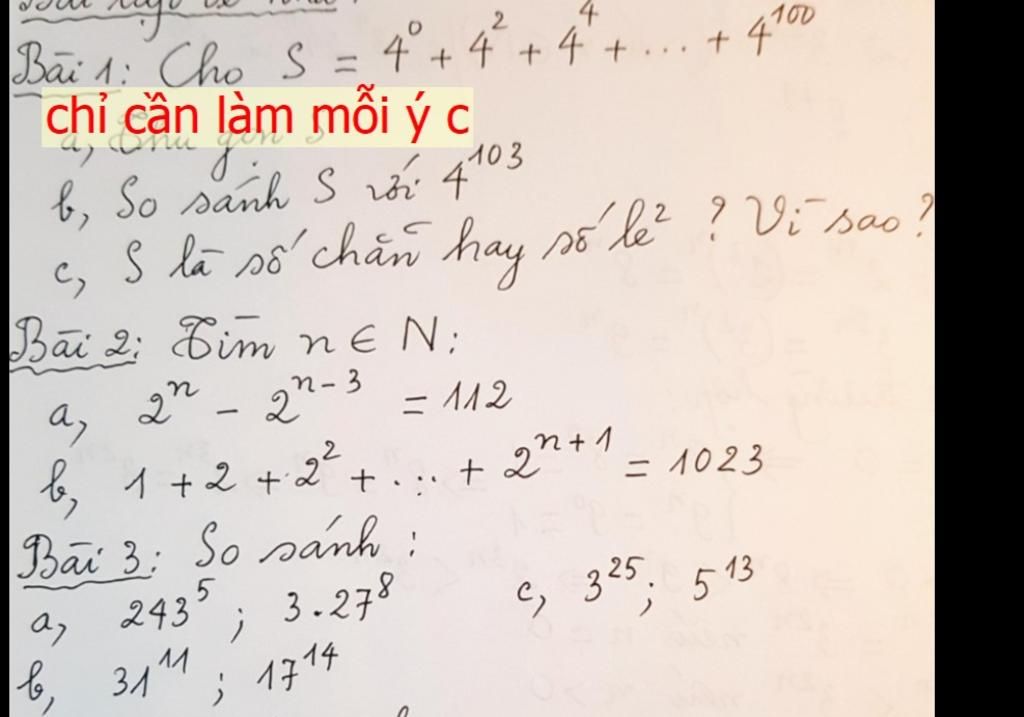 Bài 1: Cho S = 4⁰ + 4² + 4⁴ + ... + 4¹⁰⁰
chỉ cần làm mỗi ý c
a, Thu gọn S
b, So sánh S với 4¹⁰³
c, S là số chẵn hay số lẻ ? Vì sao ?
Bài 2: Tìm n ∈ N:
a, 2ⁿ - 2ⁿ⁻³ = 112
b, 1 + 2 + 2² + ... + 2ⁿ⁺¹ = 1023
Bài 3: So sánh :
a, 243⁵ ; 3.27⁸
c, 3²⁵; 5¹³
b, 31¹¹ ; 17¹⁴